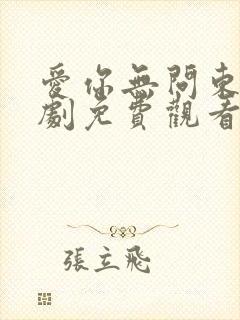 愛你無問東
劇免費觀看
張立飛